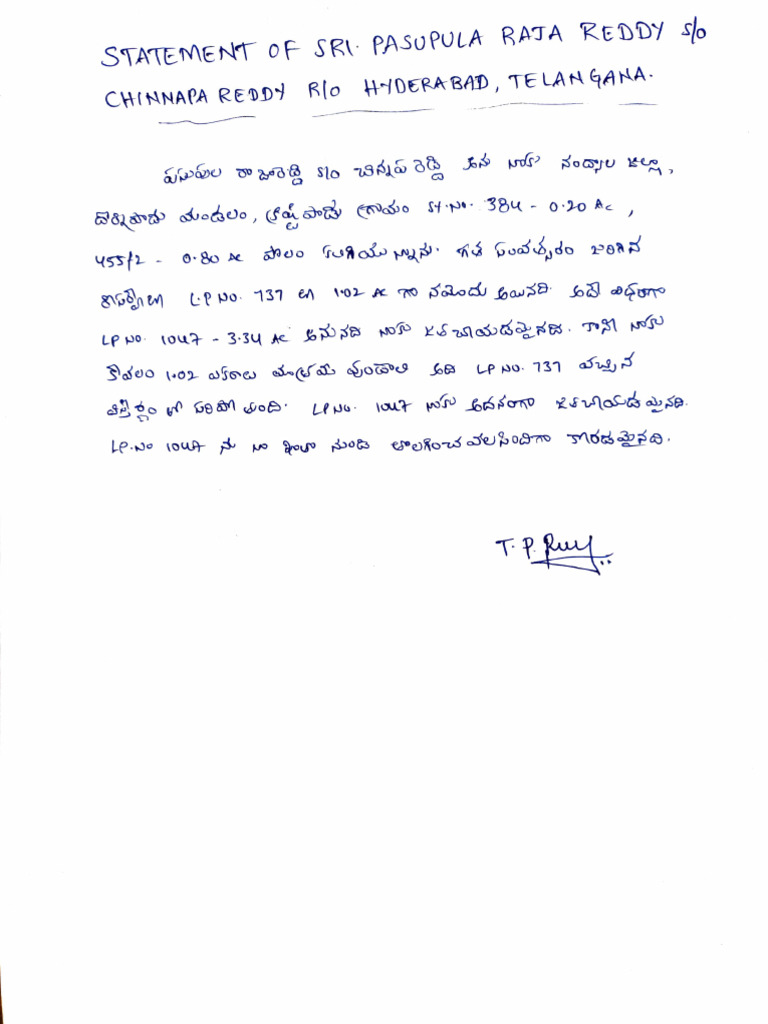 STATEMENT OF SRI. PASUPULA RAJA REDDY S/O
CHINNAPA REDDY R/O HYDERABAD, TELANGANA.
పసుపుల రాజారెడ్డి S/O చిన్నప రెడ్డి అను నాకు నంద్యాల జిల్లా,
దొర్నిపాడు మండలం, క్రిష్టిపాడు గ్రామం SY.No. 384 - 0.20 Ac,
455/2 - 0.80 Ac పొలం కలిగియున్నాను. గత సంవత్సరం జరిగిన
L.P No. 737 లా 1.02 Ac గా నమోదు అయినది. అదే విధంగా
LP No. 1047 - 3.34 Ac అనునది నాకు జత చేయడమైనది. కానీ నాకు
కేవలం 1.02 ఎకరాలు మాత్రమే వుండాలి అది LP No. 737 వచ్చిన
విస్తీర్ణం తో సరిపోతుంది. LP No. 1047 నాకు అదనంగా జత చేయడమైనది.
LP.No 1047 ను నా నుండి తొలగించవలసిందిగా కోరడమైనది.
T. P.